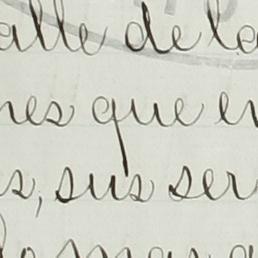 alle de la
nes que en
s, sus ser